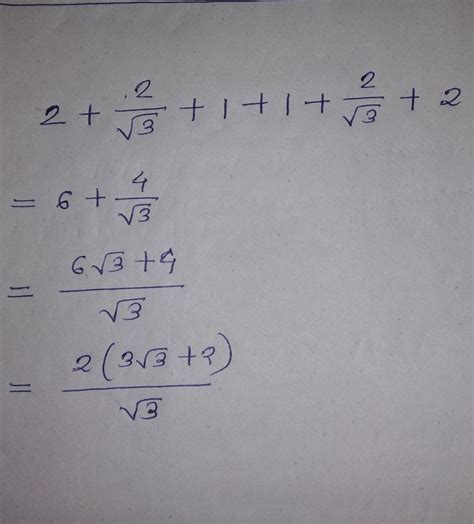 2 + 2/√3 + 1 + 1 + 2/√3 + 2
= 6 + 4/√3
= (6√3 + 4)/√3
= 2(3√3 + 2)/√3